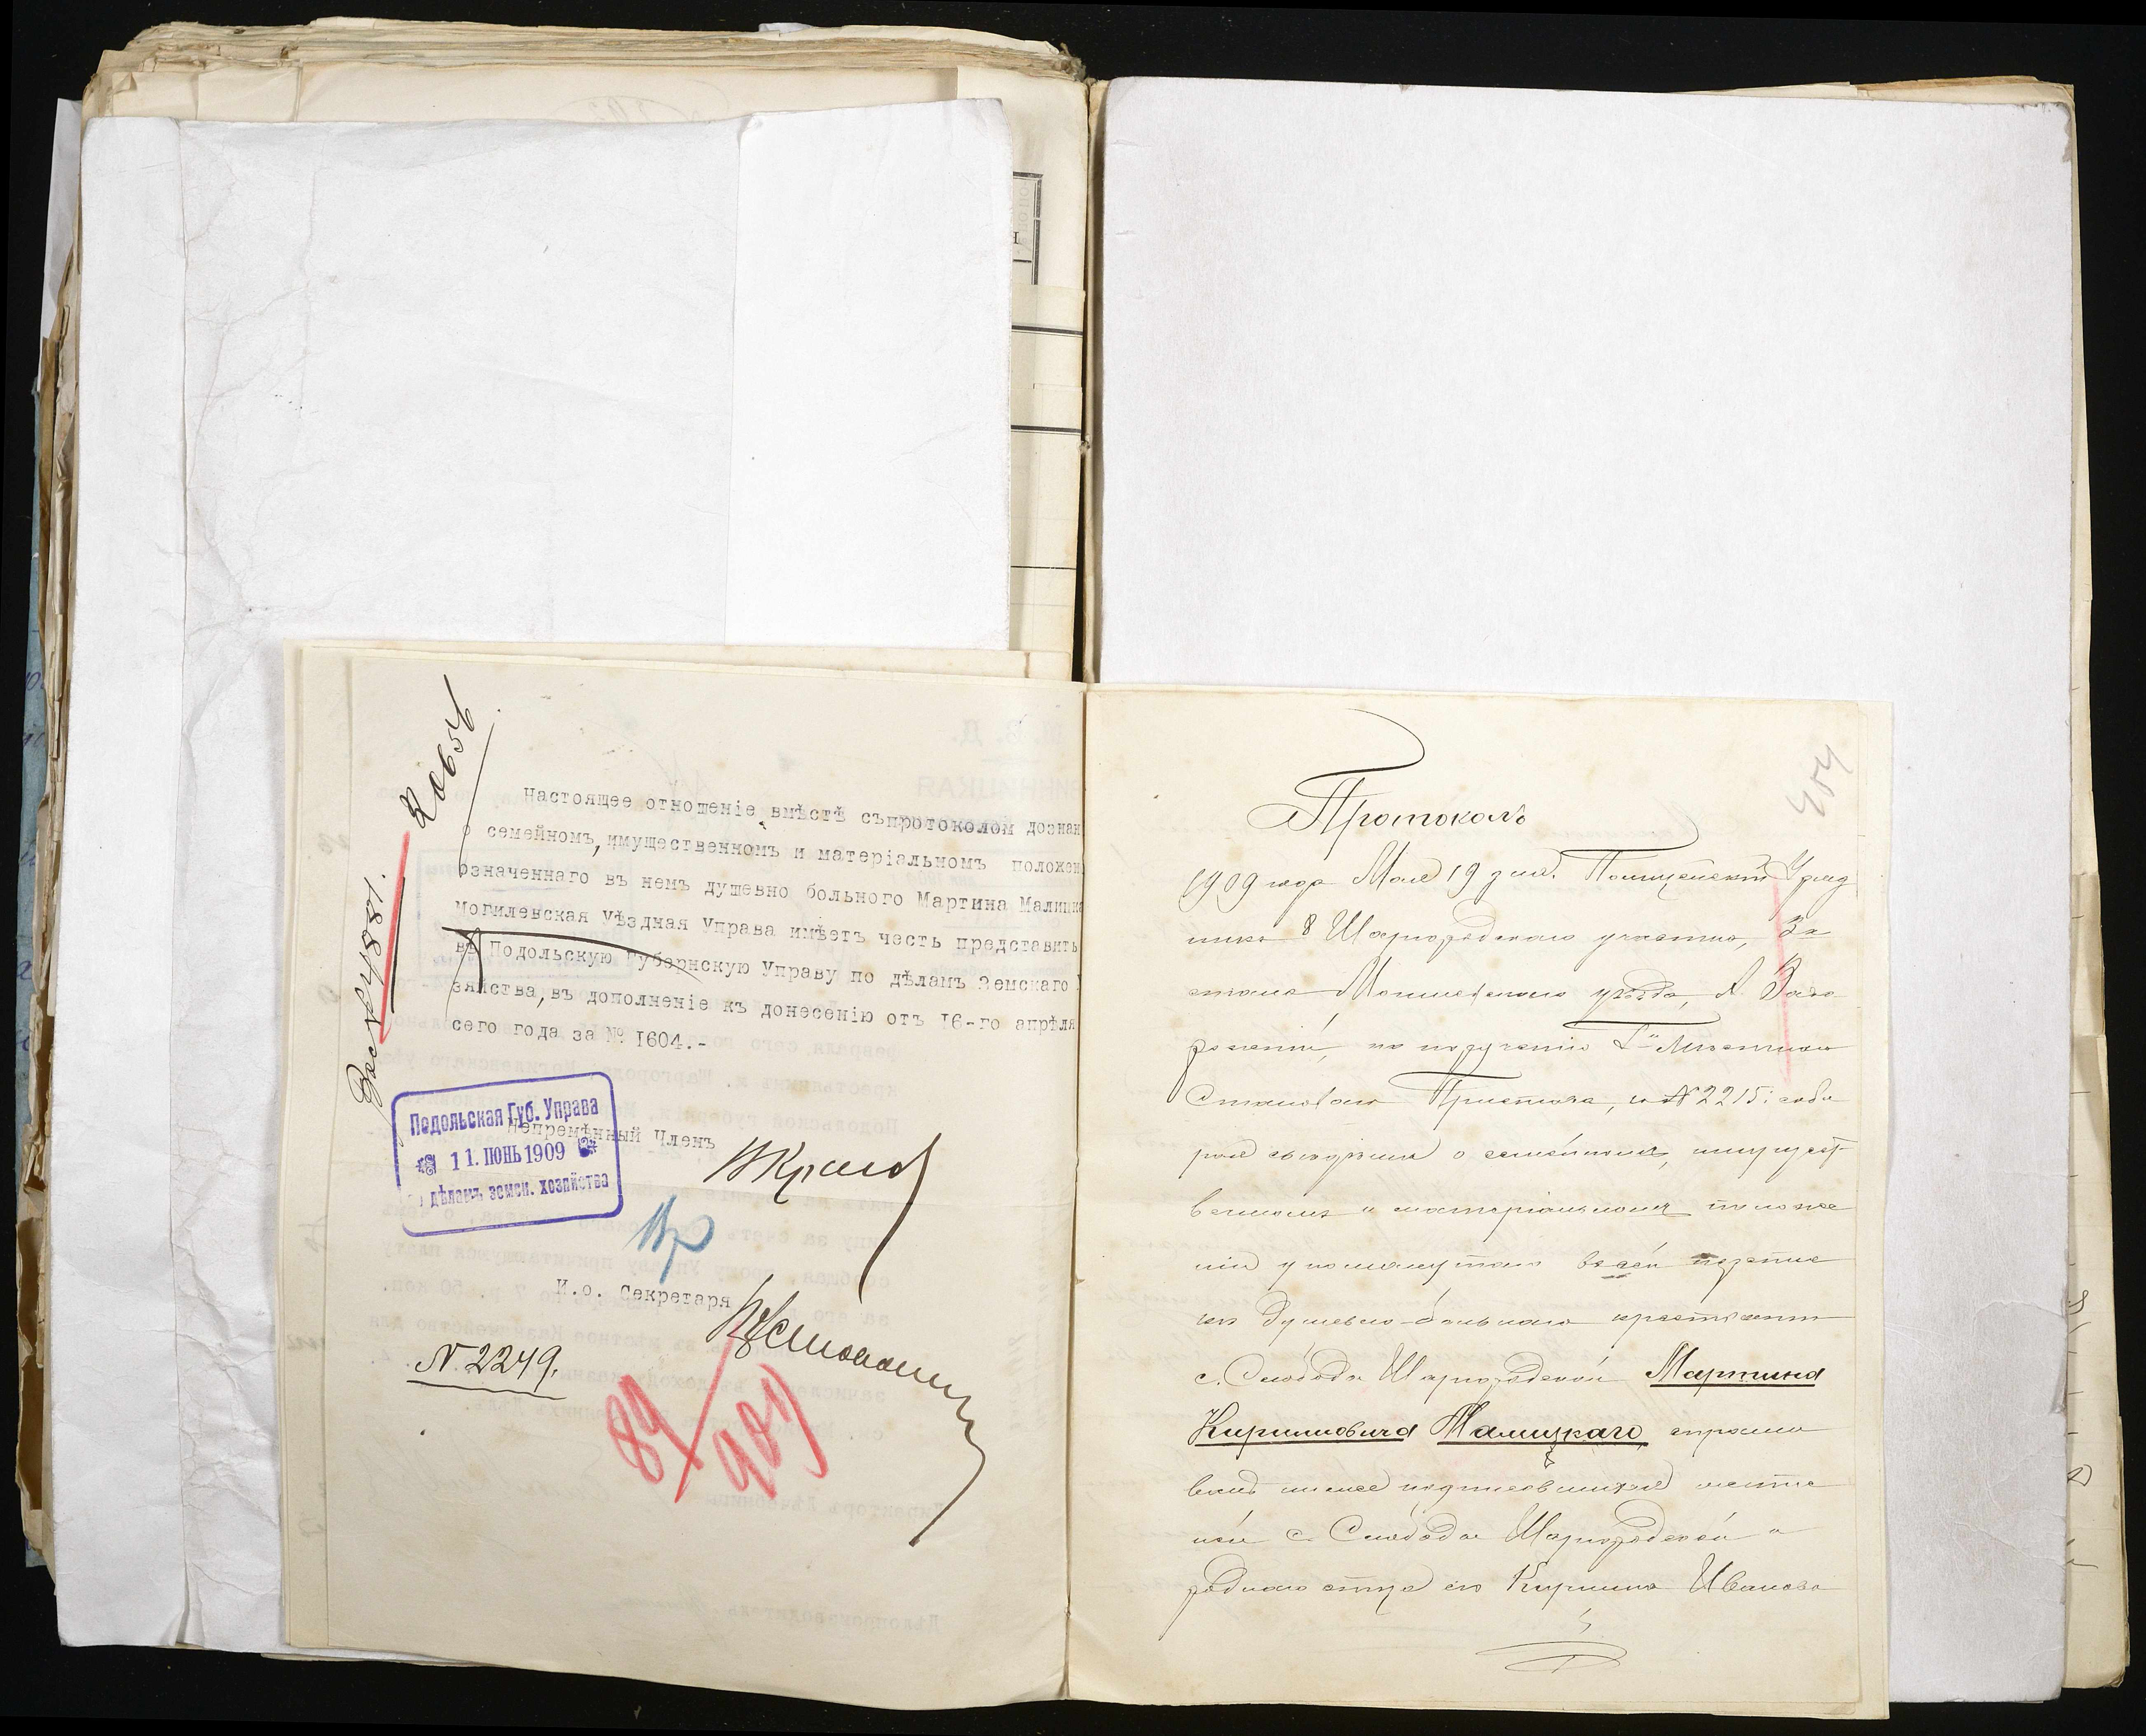 20656
Вх. № 4881.
Настоящее отношеніе вмѣстѣ съпротоколом дознан
о семейномъ, имущественномъ и матеріальномъ положен
означеннаго въ немъ душевно больного Мартина Малицка
Могилевская Уѣздная Управа имѣетъ честь представить
въ Подольскую Губернскую Управу по дѣламъ Земскаго
зяйства, въ дополненіе къ донесенію отъ 16-го апрѣля
сего года за № 1604.-
Подольская Губ. Управа
11. ІЮНЬ 1909
дѣламъ земск. хозяйства
Непремѣнный Членъ
И.о. Секретаря
N. 2249.
84
404
Протоколъ
1909 года Мая 19 дня. Полицейскій Уряд
никъ 8 Шаргородскаго участка, 3го
стана Могилевскаго уѣзда, А. Заго
по порученію Гна Мѣстнаго
Становаго Пристава, за № 2215: соби
рая свѣдѣнія о семейномъ, имущест-
венномъ и матеріальномъ положе
ніи упомянутаго въ сей перепис
кѣ душевно-больнаго крестьянина
с. Слобода Шаргородской Мартина
Кирилловича Малицкаго, спраши
валъ ниже подписавшихся жите
лей с. Слободы Шаргородской и
роднаго отца его Кирилла Иванова